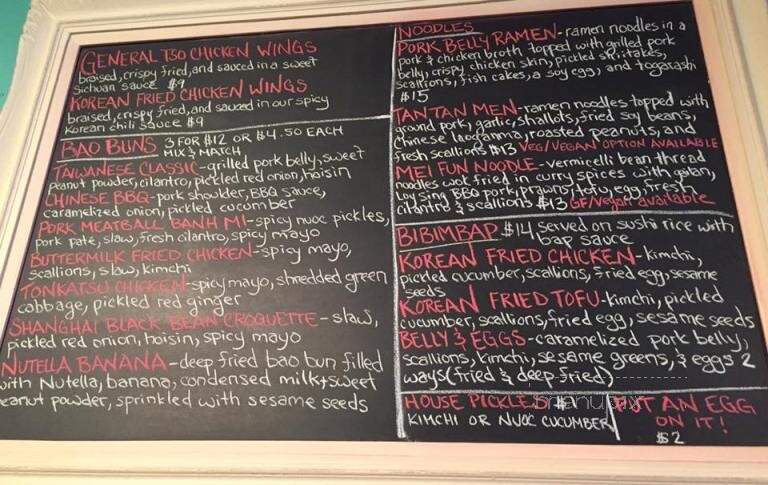 GENERAL TSO CHICKEN WINGS
braised, crispy fried, and sauced in a sweet
Sichuan sauce $9
KOREAN FRIED CHICKEN WINGS
braised, crispy fried, and sauced in our spicy
Korean chili sauce $9
BAO BUNS 3 FOR $12 OR $4.50 EACH
MIX & MATCH
TAIWANESE CLASSIC-grilled pork belly, sweet
peanut powder, cilantro, pickled red onion, hoisin
CHINESE BBQ-pork shoulder, BBQ sauce,
caramelized onion, pickled cucumber
PORK MEATBALL BANH MI-spicy nuoc pickles,
pork pate, slaw, fresh cilantro, spicy mayo
BUTTERMILK FRIED CHICKEN-spicy mayo,
scallions, slaw, kimchi
TONKATSU CHICKEN-spicy mayo, shredded green
cabbage, pickled red ginger
SHANGHAI BLACK BEAN CROQUETTE-slaw,
pickled red onion, hoisin, spicy mayo
NUTELLA BANANA-deep fried bao bun filled
with Nutella, banana, condensed milk, sweet
peanut powder, sprinkled with sesame seeds
NOODLES
PORK BELLY RAMEN-ramen noodles in a
pork & chicken broth topped with grilled pork
belly, crispy chicken skin, pickled shiitakes,
scallions, fish cakes, a soy egg, and togarashi
$15
TAN TAN MEN-ramen noodles topped with
ground pork, garlic, shallots, fried soy beans,
Chinese laoganma, roasted peanuts, and
fresh scallions $13 VEG/VEGAN OPTION AVAILABLE
MEI FUN NOODLE-vermicelli bean thread
noodles wok fried in curry spices with
BBQ pork, prawns, tofu, egg, fresh
cilantro & scallions $13 GF/Vegan available
BIBIMBAP $14 served on sushi rice with
bap sauce
KOREAN FRIED CHICKEN-kimchi,
pickled cucumber, scallions, fried egg, sesame
seeds
KOREAN FRIED TOFU-kimchi, pickled
cucumber, scallions, fried egg, sesame seeds
BELLY & EGGS-caramelized pork belly,
scallions, kimchi, sesame greens, & eggs 2
ways (fried & deep-fried)
HOUSE PICKLES
KIMCHI OR NUOC CUCUMBER
PUT AN EGG
ON IT!
$2